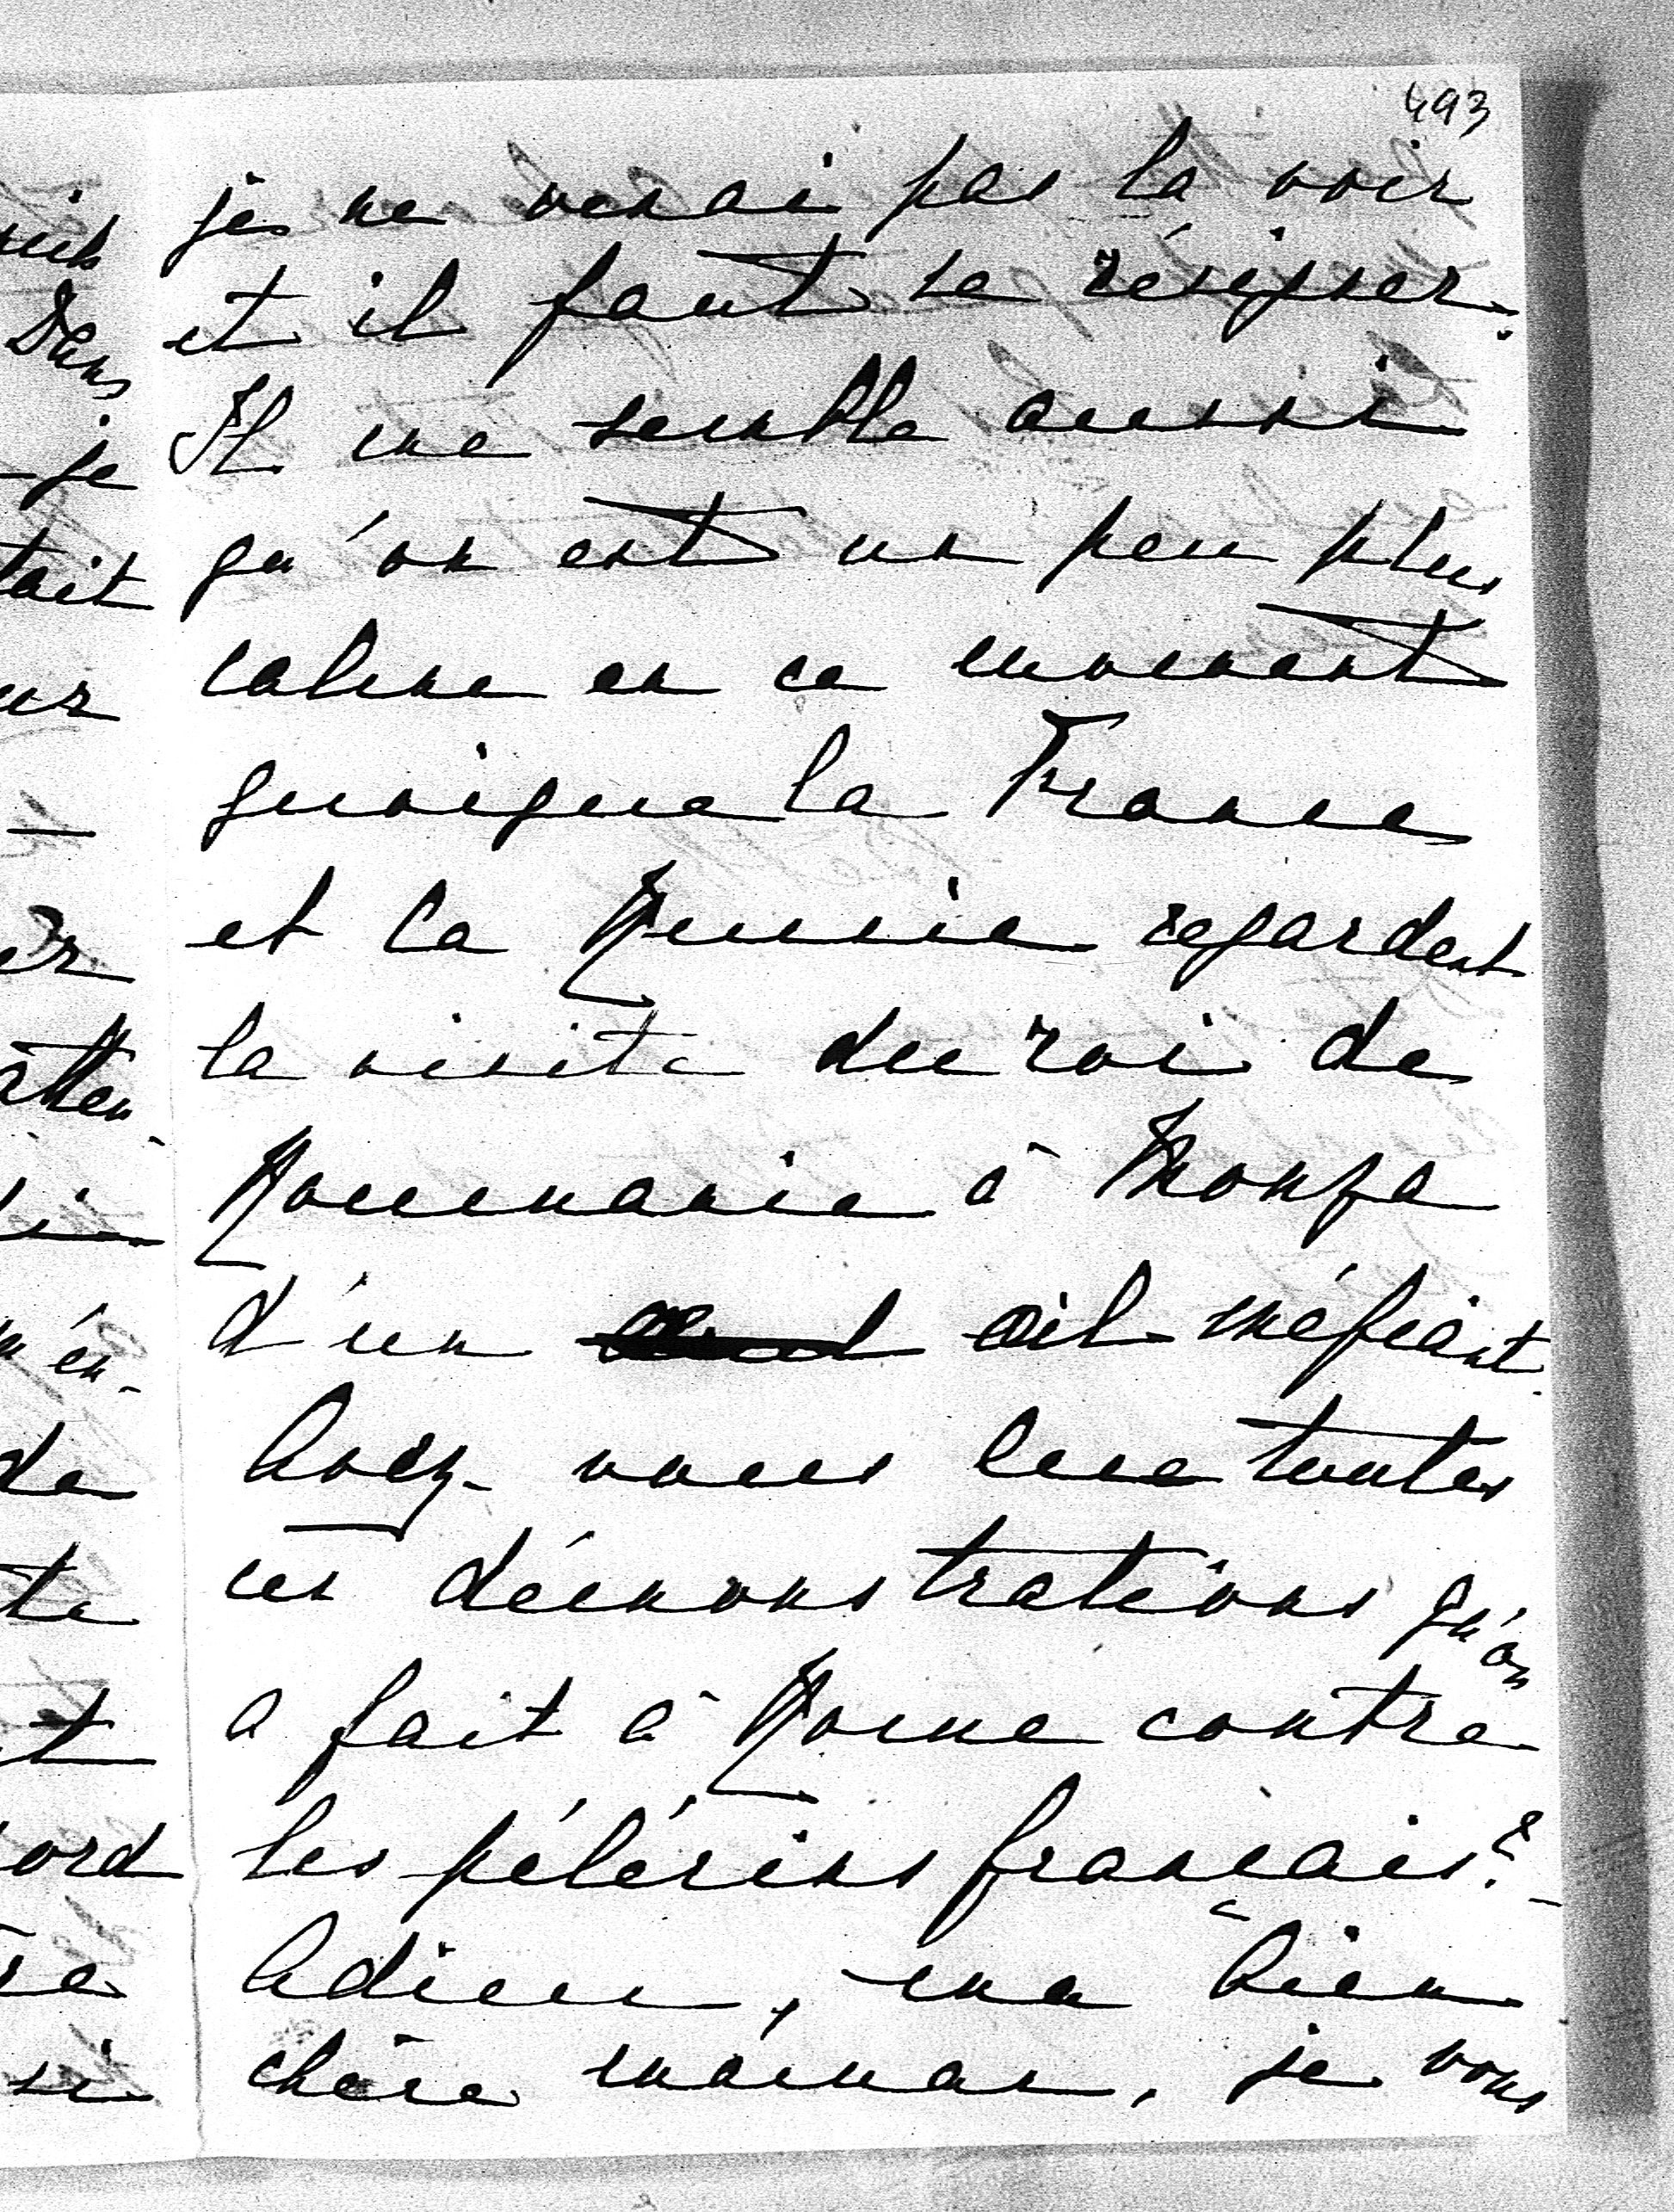 493
je ne verrai pas la voir
et il faut se résigner.
Il me semble aussi
qu'on est un peu plus
calme en ce moment
quoique la France
et la Russie regardent
la visite du roi de
Roumanie à Monza
d'un œil méfiant.
Avez-vous lu toutes
ces démonstrations qu'on
a fait à Rome contre
les pélérins français? -
Adieu, ma bien
chère maman, je vous